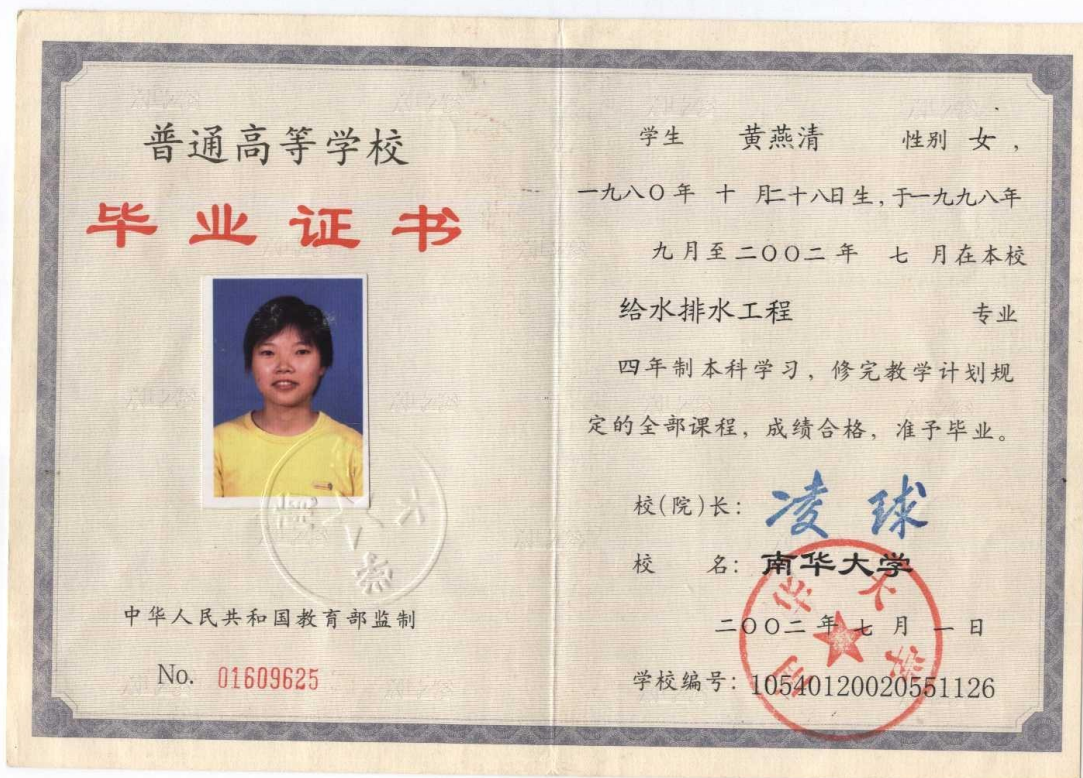 普通高等学校
毕业证书
中华人民共和国教育部监制
No. 01609625
学生 黄燕清 性别 女，
一九八〇年 十 月二十八日生，于一九九八年
九月至二〇〇二年 七 月在本校
给水排水工程 专业
四年制本科学习，修完教学计划规
定的全部课程，成绩合格，准予毕业。
校(院)长：凌球
校 名：南华大学
二〇〇二年七月一日
学校编号：105401200205511126
南华大学